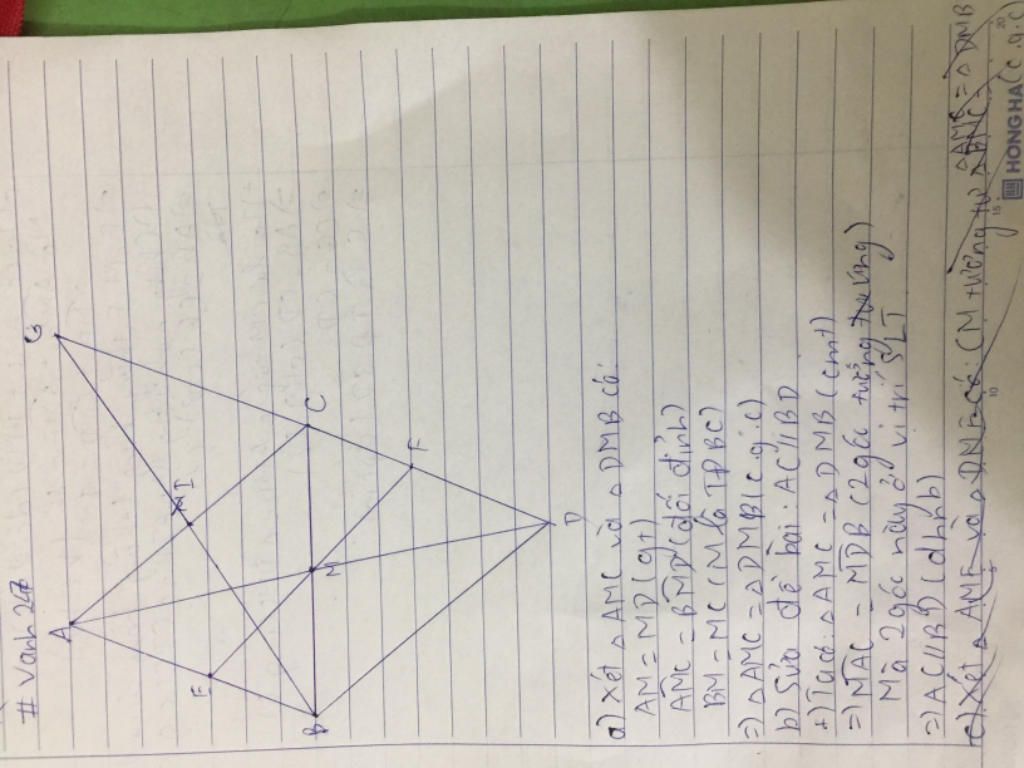 # Vanh 20
G
A
I
E
C
F
M
B
D
a) Xét △ AMC và △ DMB có:
AM = MD (gt)
AMC = BMD (đối đỉnh)
BM = MC (M là TĐ BC)
=) △ AMC = △ DMB (c.g.c)
b) Sửa đề bài: AC // BD
+) Ta có: △ AMC = △ DMB (cmt)
=) MAC = MDB (2 góc tương ứng)
Mà 2 góc này ở vị trí SLT
=) AC // BD (dhnb)
c) Xét △ AME và △ DNF có: CM tương tự △ BMC
△ AMC = △ DMB
(c.g.c)
HONG HA
5
10
15
20